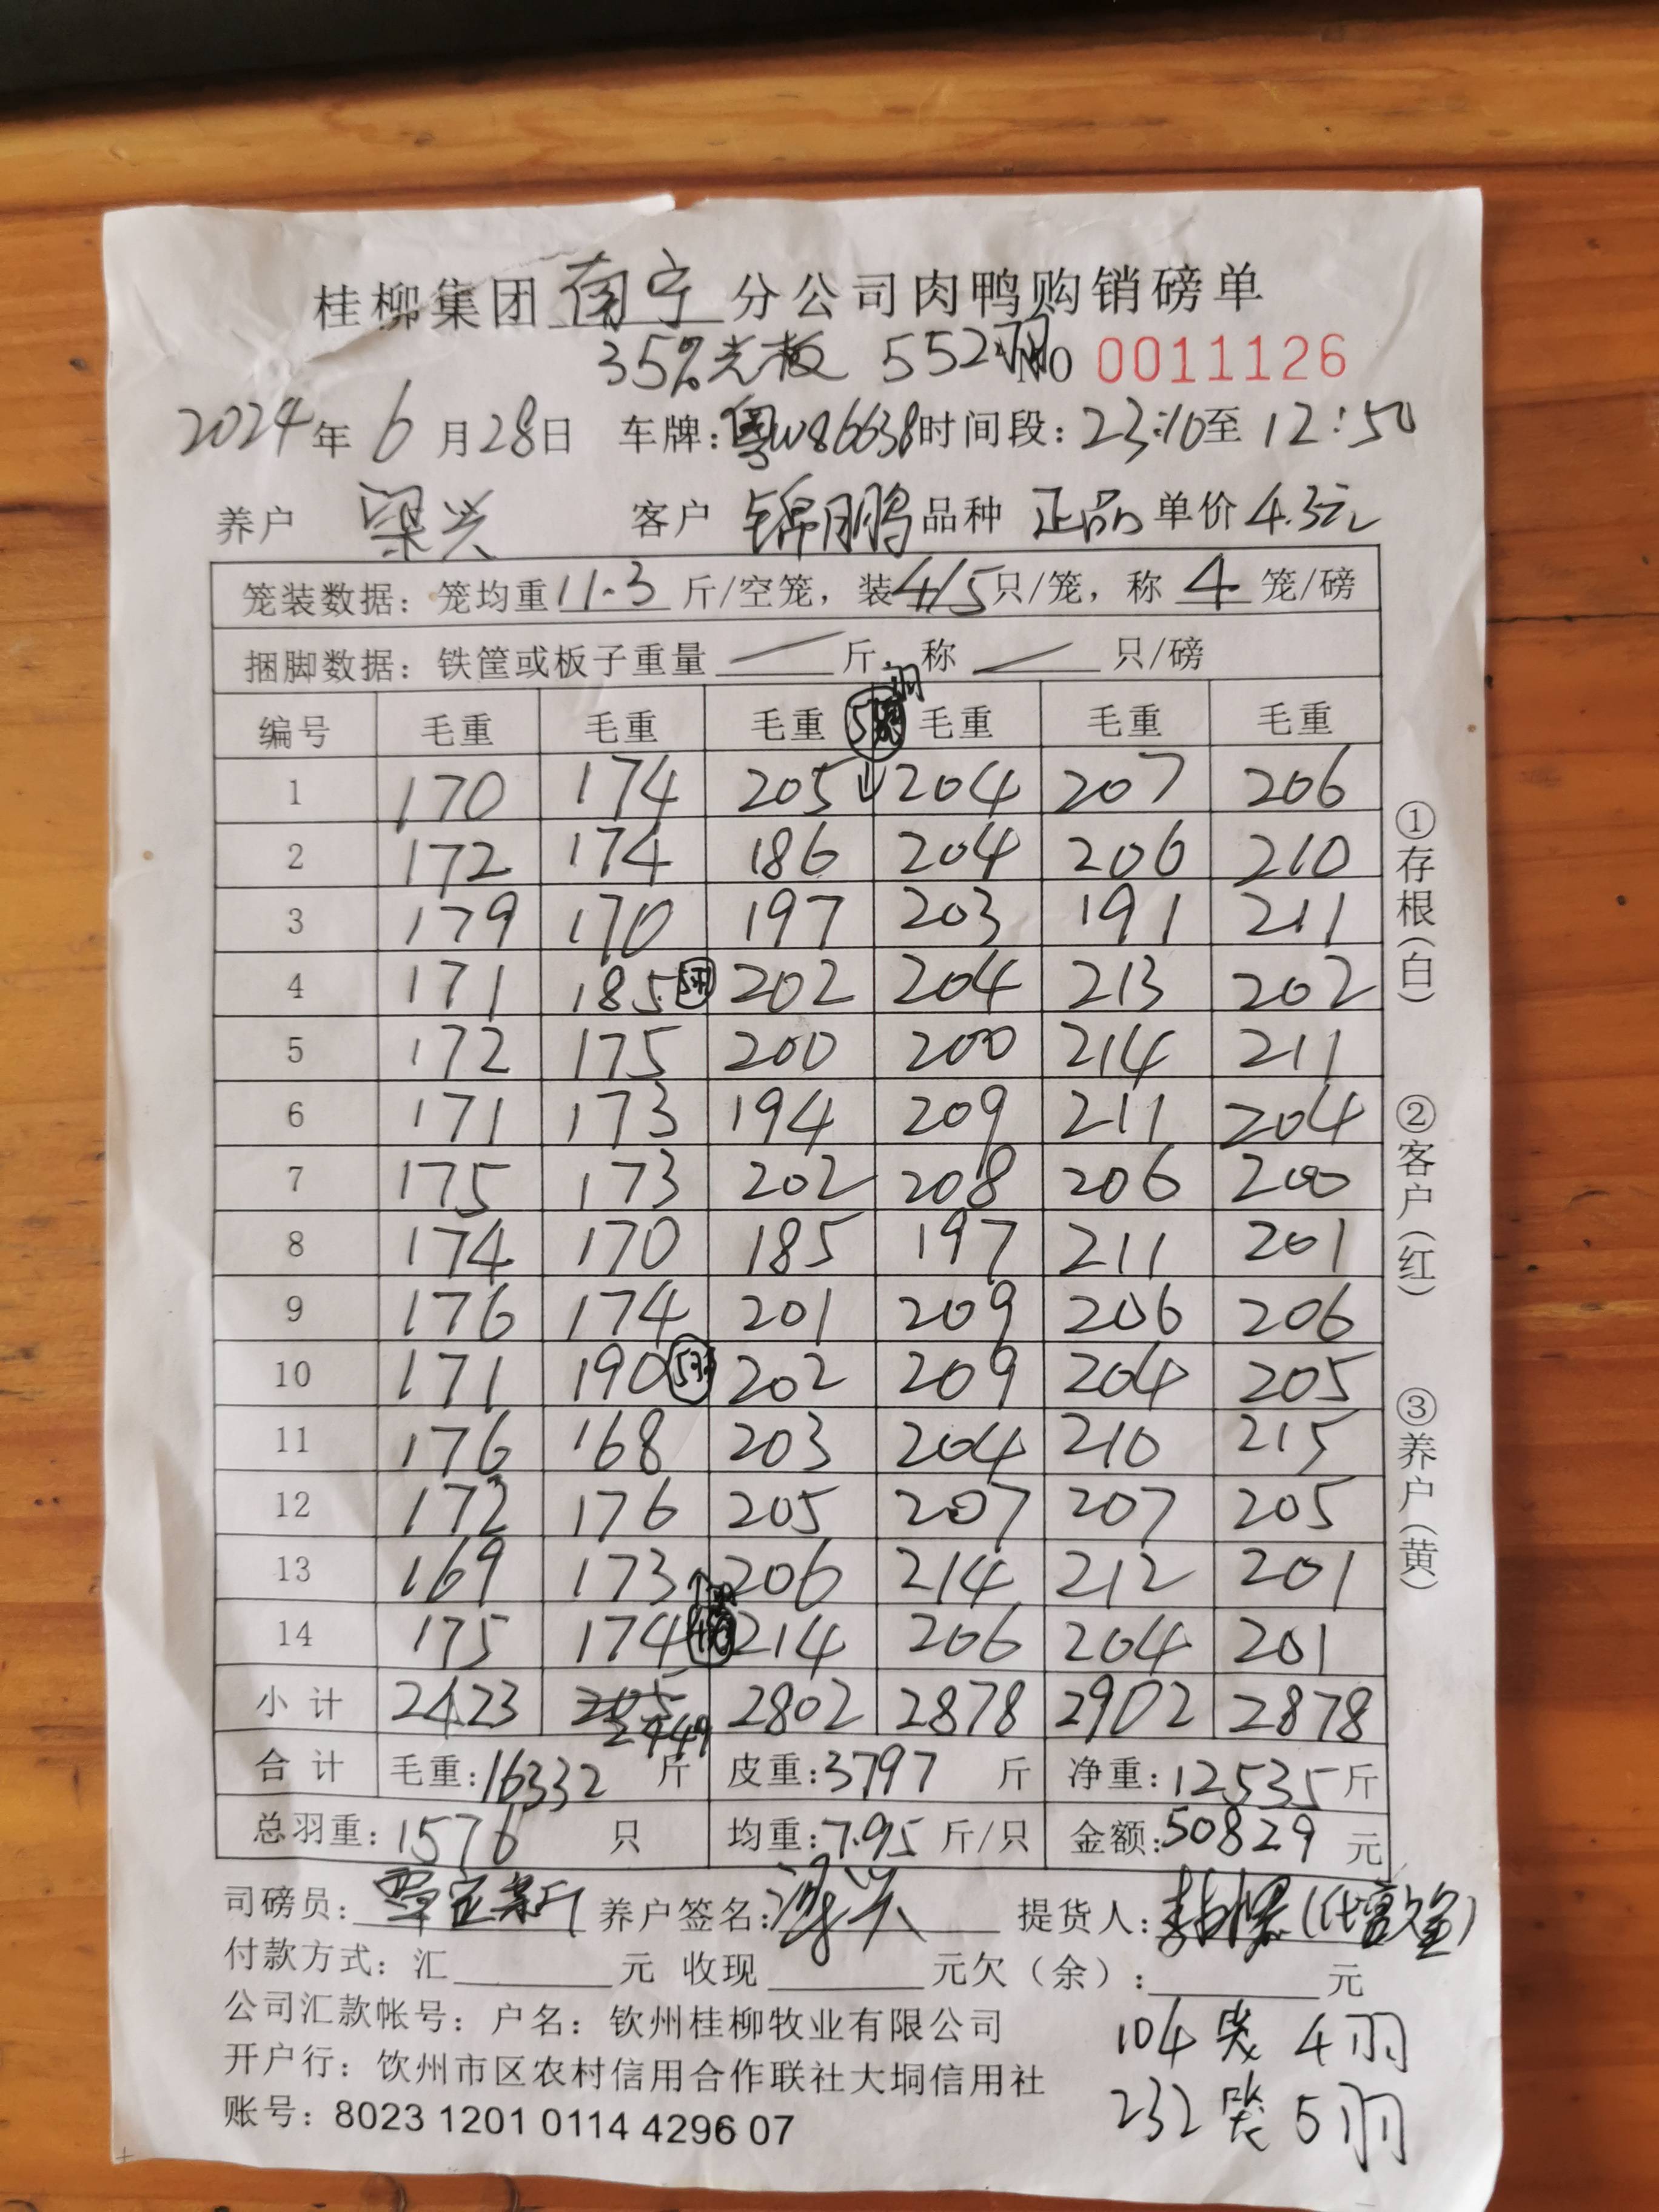 桂柳集团南宁分公司肉鸭购销磅单
35%光板 552羽 NO 0011126
2024年6月28日 车牌:粤W86638时间段:23:10至12:50
养户 梁兴 客户 锦鹏 品种 正品 单价 4.3元
笼装数据: 笼均重11.3斤/空笼, 装4/5只/笼, 称4笼/磅
捆脚数据: 铁筐或板子重量 — 斤, 称 — 只/磅
编号 毛重 毛重 毛重 毛重 毛重 毛重
1 170 174 205 204 207 206
2 172 174 186 204 206 210
3 179 170 197 203 191 211
4 171 185 202 204 213 202
5 172 175 200 200 214 211
6 171 173 194 209 211 204
7 175 173 202 208 206 200
8 174 170 185 197 211 201
9 176 174 201 209 206 206
10 171 190 202 209 204 205
11 176 168 203 204 210 215
12 172 176 205 207 207 205
13 169 173 206 214 212 201
14 175 174 214 206 204 201
小计 2423 2449 2802 2878 2902 2878
合计 毛重:16332 斤 皮重:3797 斤 净重:12535斤
总羽重:1576 只 均重:7.95 斤/只 金额:50829 元
司磅员: 养户签名: 提货人:
付款方式: 汇 元 收现 元欠(余): 元
公司汇款帐号: 户名: 钦州桂柳牧业有限公司
开户行: 饮州市区农村信用合作联社大垌信用社
账号: 8023 1201 0114 4296 07
104 笼 4羽
232 笼 5羽
①存根(白)
②客户(红)
③养户(黄)